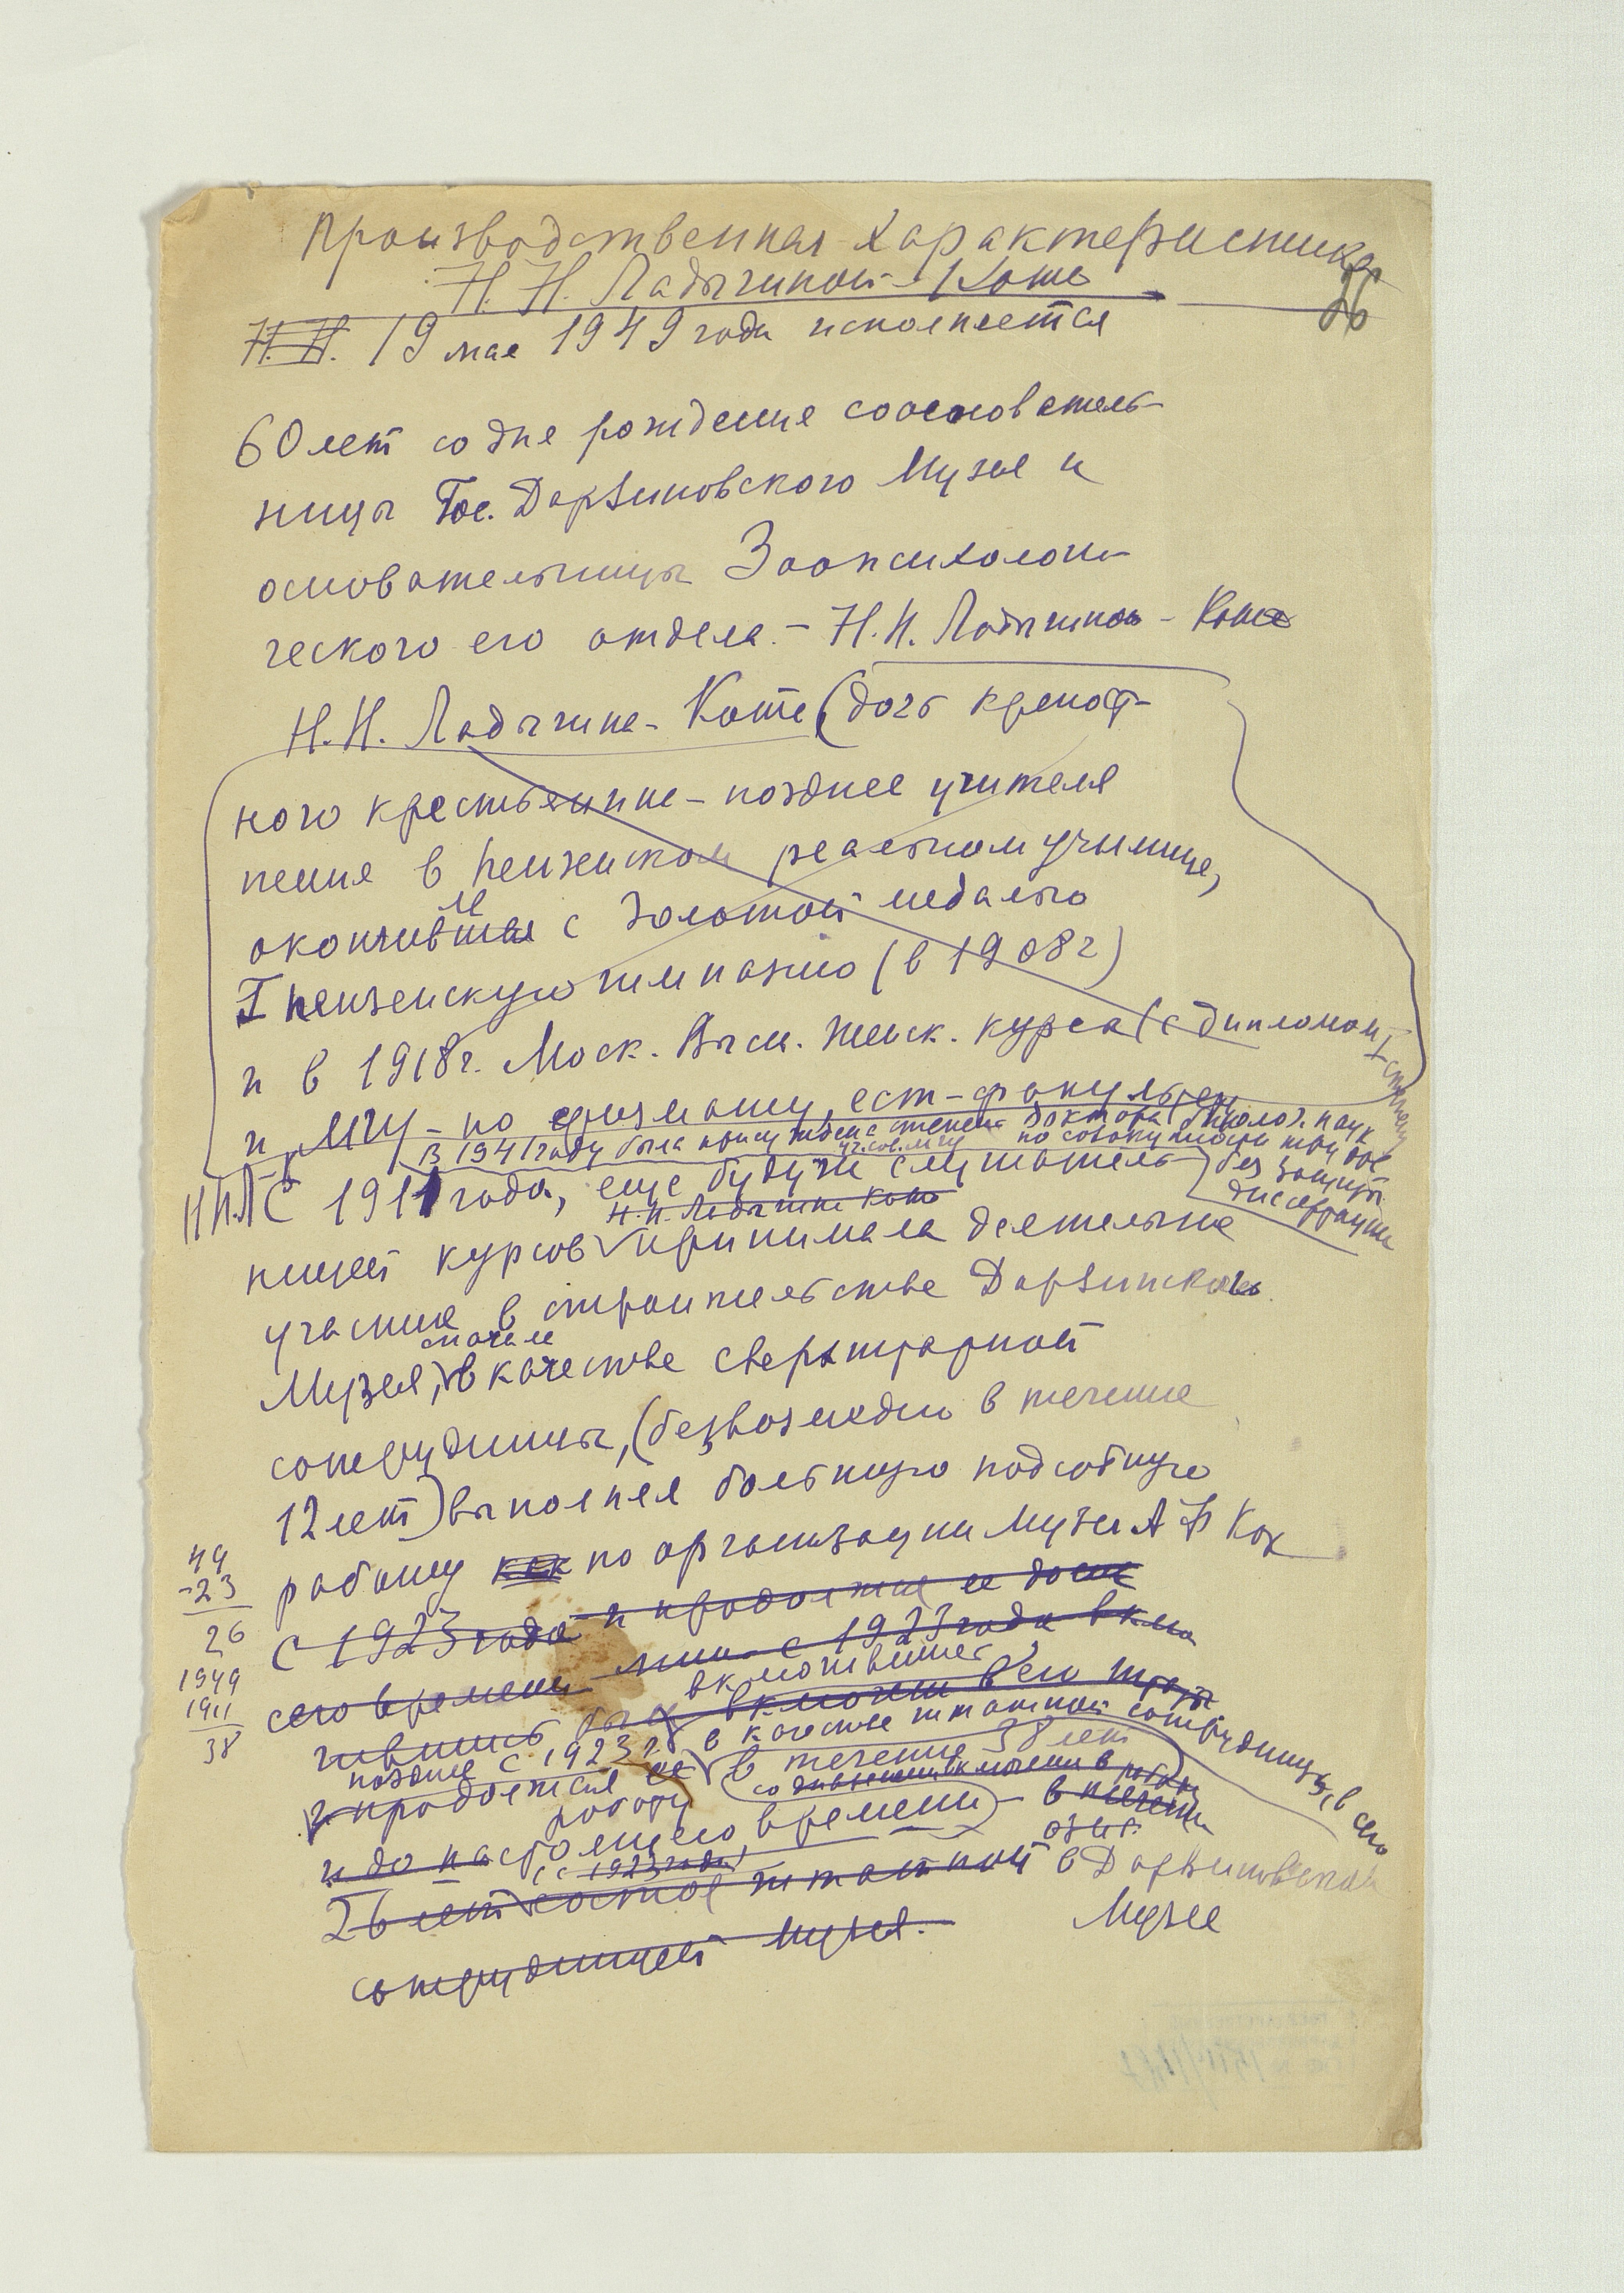 Производственная характеристика
Н. Н. Ладыгиной-Котс
26
Н. Н. 19 мая 1949 года исполняется
60 лет со дня рождения сооснователь-
ницы Гос. Дарвиновского Музея и
основательницы Зоопсихологи-
ческого его отдела. – Н. Н. Ладыгиной - Котс
Н. Н. Ладыгина - Котс (дочь крепост-
ного крестьянина – позднее учителя
пения в Пензенском реальном училище,
окончившая ла с золотой медалью
I Пензенскую гимназию (в 1908 г)
и в 1918 г. Моск. Высш. Женск. курсы (с дипломом I степени
и МГУ – по ест-факультету
В 1941 году была присуждена степень доктора биолог. наук
уч. сов. МГУ по совокупности трудов
без защиты
диссертации
Н.Н.Л С 1911 года, еще будучи слушатель-
Н. Н. Ладыгина Котс
ницей курсов принимала деятельное
участие в строительстве Дарвинского
сначала
Музея, в качестве сверхштатной
сотрудницы, (безвозмездно в течение
12 лет) выполняя большую подсобную
работу как по организации Музея А Ф Котс
49
-23
26
1949
1911
38
с 1923 года и продолжая ее до
сего времени с 1923 года вклю
включившись
чившись в его штаты
позднее с 1923 г. в качестве штатной сотрудницы, в сего
и продолжая ее в течение 38 лет
работу
и до настоящего времени – в течение
(с 1923 года)
26 лет состоя штатной в Дарвиновском
сотрудницей Музея. Музее